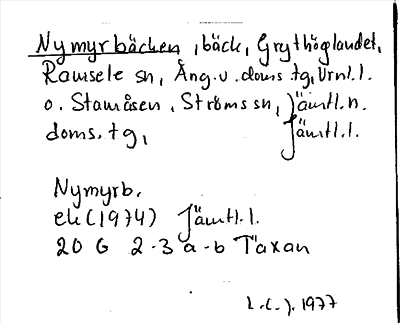 Nymyrbäcken, bäck, Grythöglandet,
Ramsele sn, Ång.v.doms.tg, Vrnl.l.
o. Stamåsen, Ströms sn, Jämtl.n.
doms.tg, Jämtl.l.
Nymyrb.
ek (1974) Jämtl.l.
20 G 2-3 a-b Täxan
1977